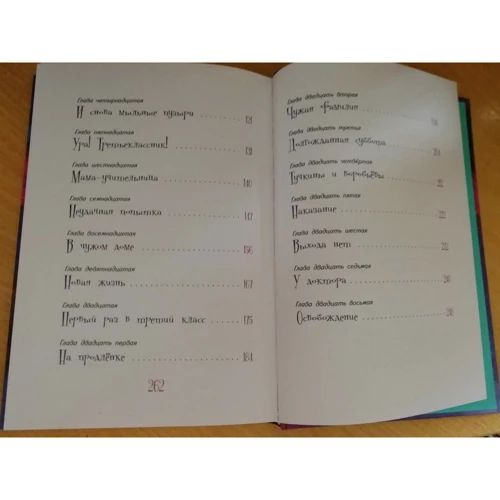 Глава четырнадцатая
И снова мыльные пузыри
Глава пятнадцатая
Ура! Третьеклассник! 131
Глава шестнадцатая
Мама-учительница 140
Глава семнадцатая
Неудачная попытка 147
Глава восемнадцатая
В чужом доме 156
Глава девятнадцатая
Новая жизнь 167
Глава двадцатая
Первый раз в третий класс 175
Глава двадцать первая
На продлёнке 184
262
Глава двадцать вторая
Чужая фамилия
Глава двадцать третья
Долгожданная суббота
Глава двадцать четвёртая
Тучкины и воробьёвы
Глава двадцать пятая
Наказание
Глава двадцать шестая
Выхода нет
Глава двадцать седьмая
У доктора
Глава двадцать восьмая
Освобождение